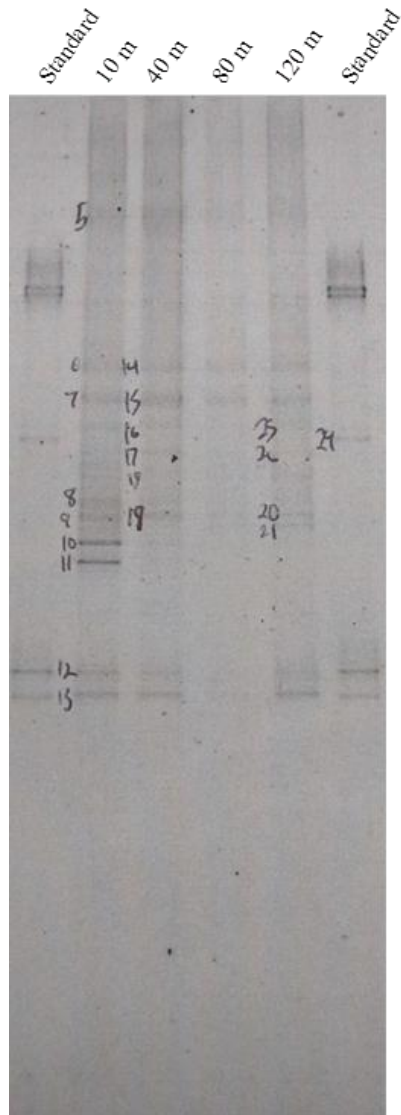 Standard 10 m 40 m 80 m 120 m Standard
5
6 14
7 15
16 25 24
17 26
19
8
9 18 20
10 21
11
12
13